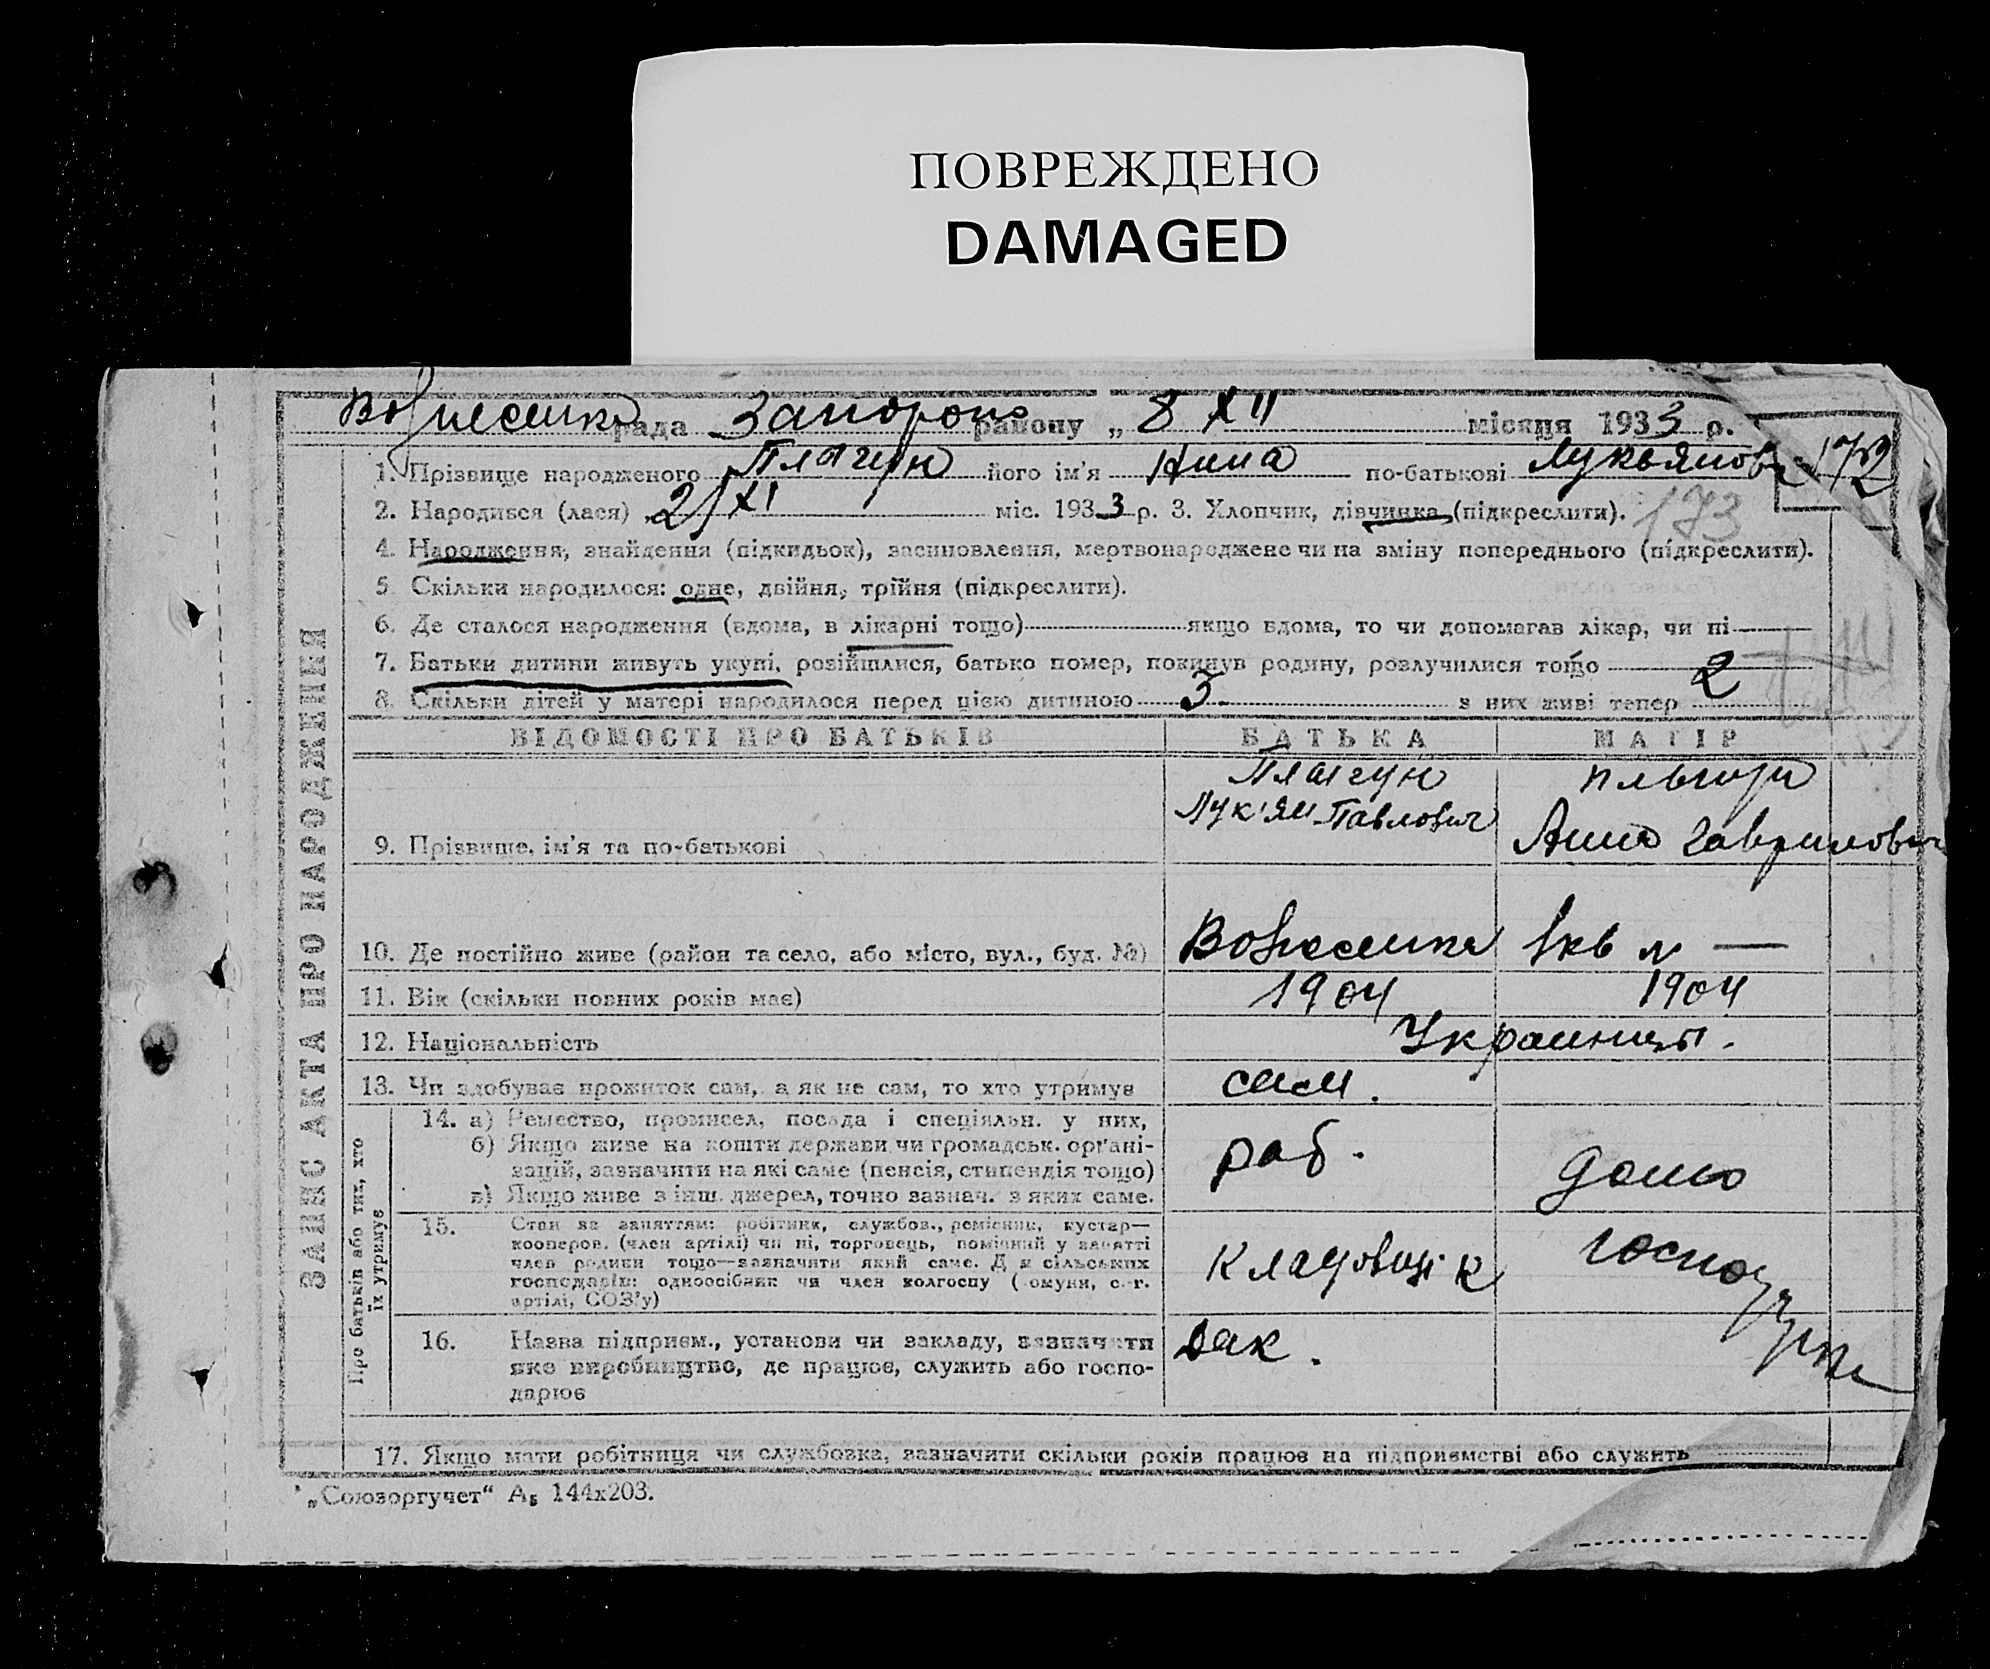 ПОВРЕЖДЕНО
DAMAGED
Вознесенка рада Запорож району „ 8 XII місяця 1933 р.
172
1. Прізвище народженого Плагун його ім'я Нина по-батькові Лукьянов
173
2. Народився (лася) 2/XI міс. 1933 р. 3. Хлопчик, дівчинка (підкреслити).
4. Народження, знайдення (підкидьок), засиновлення, мертвонароджене чи на зміну попереднього (підкреслити).
5 Скільки народилося: одне, двійня, трійня (підкреслити).
6. Де сталося народження (вдома, в лікарні тощо) якщо вдома, то чи допомагав лікар, чи ні
7. Батьки дитини живуть укупі, розійшлися, батько помер, покинув родину, розлучилися тощо
8. Скільки дітей у матері народилося перед цією дитиною 3. з них живі тепер 2
ВІДОМОСТІ ПРО БАТЬКІВ БАТЬКА МАТІР
Плагун
Лук'ян Павлович Анна Гаврилович
9. Прізвище, ім'я та по-батькові
10. Де постійно живе (район та село, або місто, вул., буд. №) Вознесенка 1кв №  —
11. Вік (скільки повних років має) 1904 1904
12. Національність Украинцы.
13. Чи здобуває прожиток сам, а як не сам, то хто утримує сам.
14. а) Ремество, промисел, посада і спеціяльн. у них,
б) Якщо живе на кошти держави чи громадськ. органі-
зацій, зазначити на які саме (пенсія, стипендія тощо)
в) Якщо живе з інш. джерел, точно зазнач. з яких саме.
раб. домо
15. Стан за заняттям: робітник, службов., ремісник, кустар—
кооперов. (член артілі) чи ні, торговець, помічний у занятті
член родини тощо—зазначити який саме. Для сільських
господарів: одноосібник чи член колгоспу (комуни, с.-г.
артілі, СОЗ'у)
кладовщік
16. Назва підприєм., установи чи закладу, зазначити
яке виробництво, де працює, служить або госпо-
дарює
17. Якщо мати робітниця чи службовка, зазначити скільки років працює на підприємстві або служить
ЗАПИС АКТА ПРО НАРОДЖЕННЯ
Про батьків або тих, хто
їх утримує
„Союзоргучет“ А₅ 144х203.